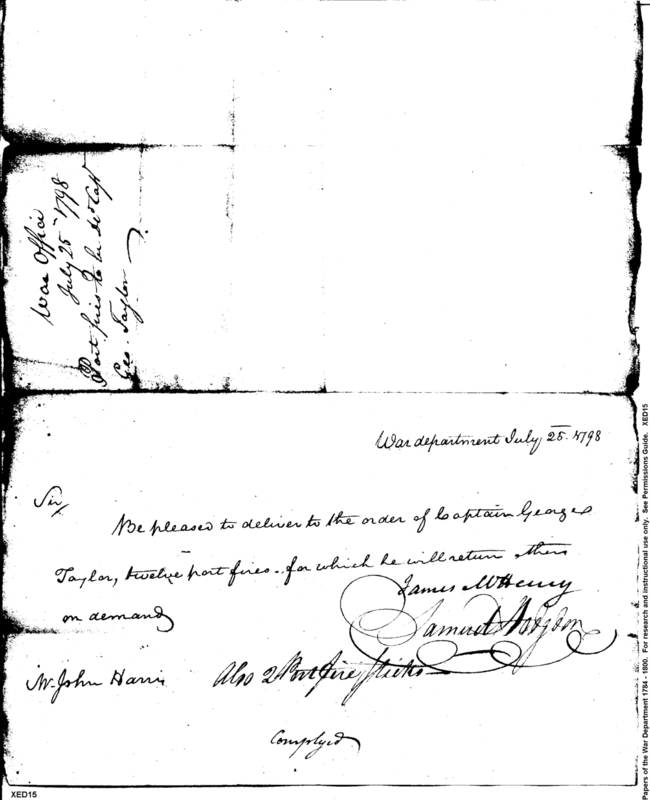 War Office
July 25 1798
Port fires to be dd Capt
Geo. Taylor
War department July, 25. 1798
Sir,
Be pleased to deliver to the order of Captain George
Taylor, twelve port fires - for which he will return others
on demand
James McHenry
Samuel Hodgdon
Mr. John Harris
Also 2 Port fire sticks
Complyed
XED15
Papers of the War Department 1784 - 1800. For research and instructional use only. See Permissions Guide. XED15